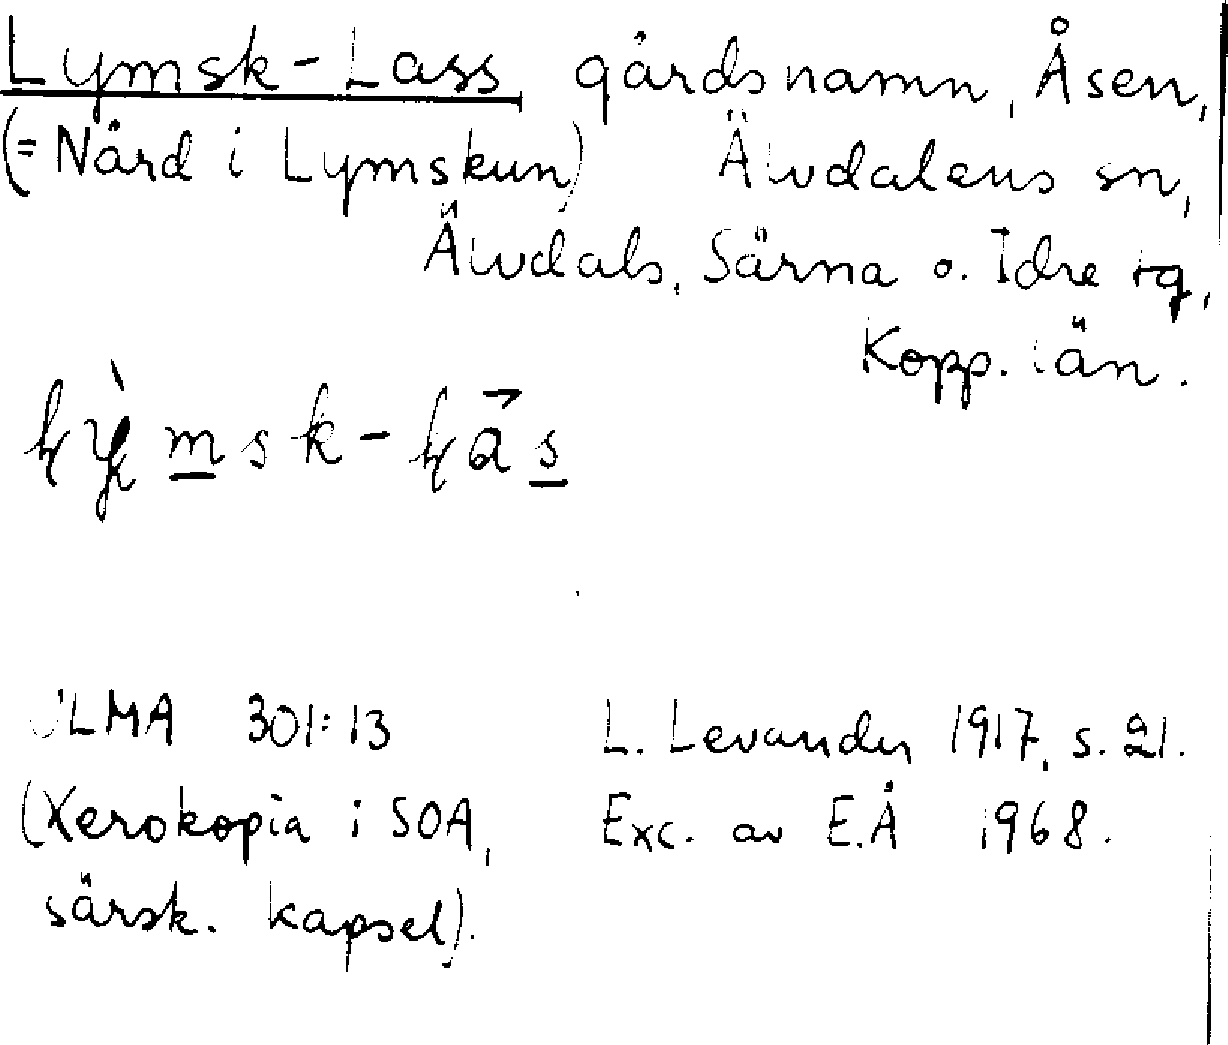 Lymsk-Lass gårdsnamn, Åsen,
(= Nård i Lymskun) Älvdalens sn,
Älvdals, Särna o. Idre tg,
Kopp. län.
ULMA 301:13 L. Levander 1917, s. 21.
(Xerokopia i SOA, Exc. av E.Å 1968.
särsk. kapsel).